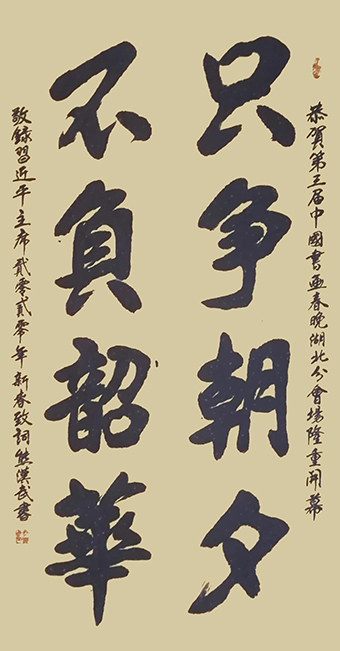 恭賀第三届中國書画春晚湖北分會場隆重開幕
只争朝夕
不負韶華
敬錄習近平主席貳零貳零年新春致詞熊漢武書